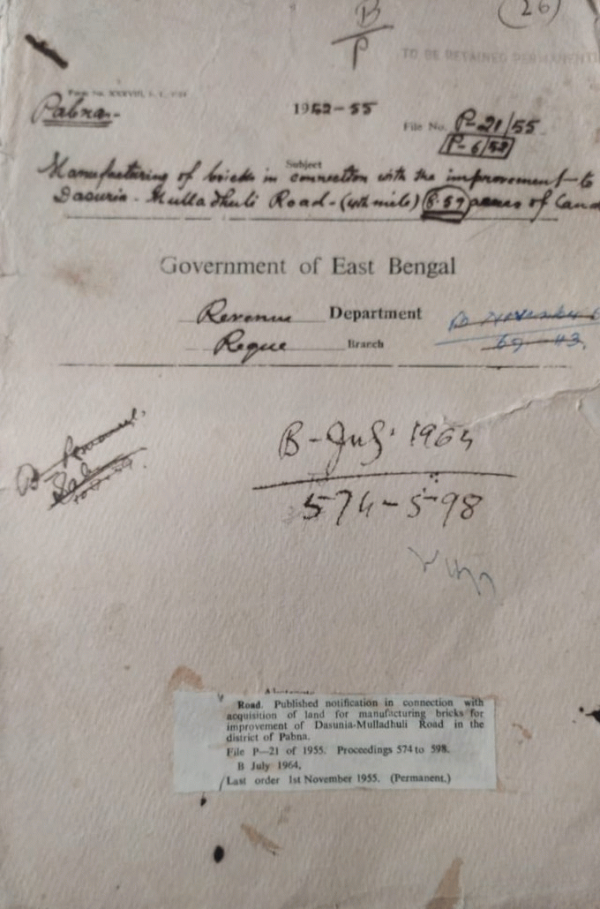 (26)
B
P
TO BE RETAINED PERMANENTL
Pabna.
1952-55
File No. P-21/55
P-6/52
Subject
Manufacturing of bricks in connection with the improvement to
Dasuria-Mulladhuli Road-(4th mile) 5.59 acres of Land
Government of East Bengal
Revenue Department
Reque Branch
B-July 1964
574-598
Road. Published notification in connection with
acquisition of land for manufacturing bricks for
improvement of Dasunia-Mulladhuli Road in the
district of Pabna.
File P—21 of 1955. Proceedings 574 to 598.
B July 1964.
Last order 1st November 1955. (Permanent.)